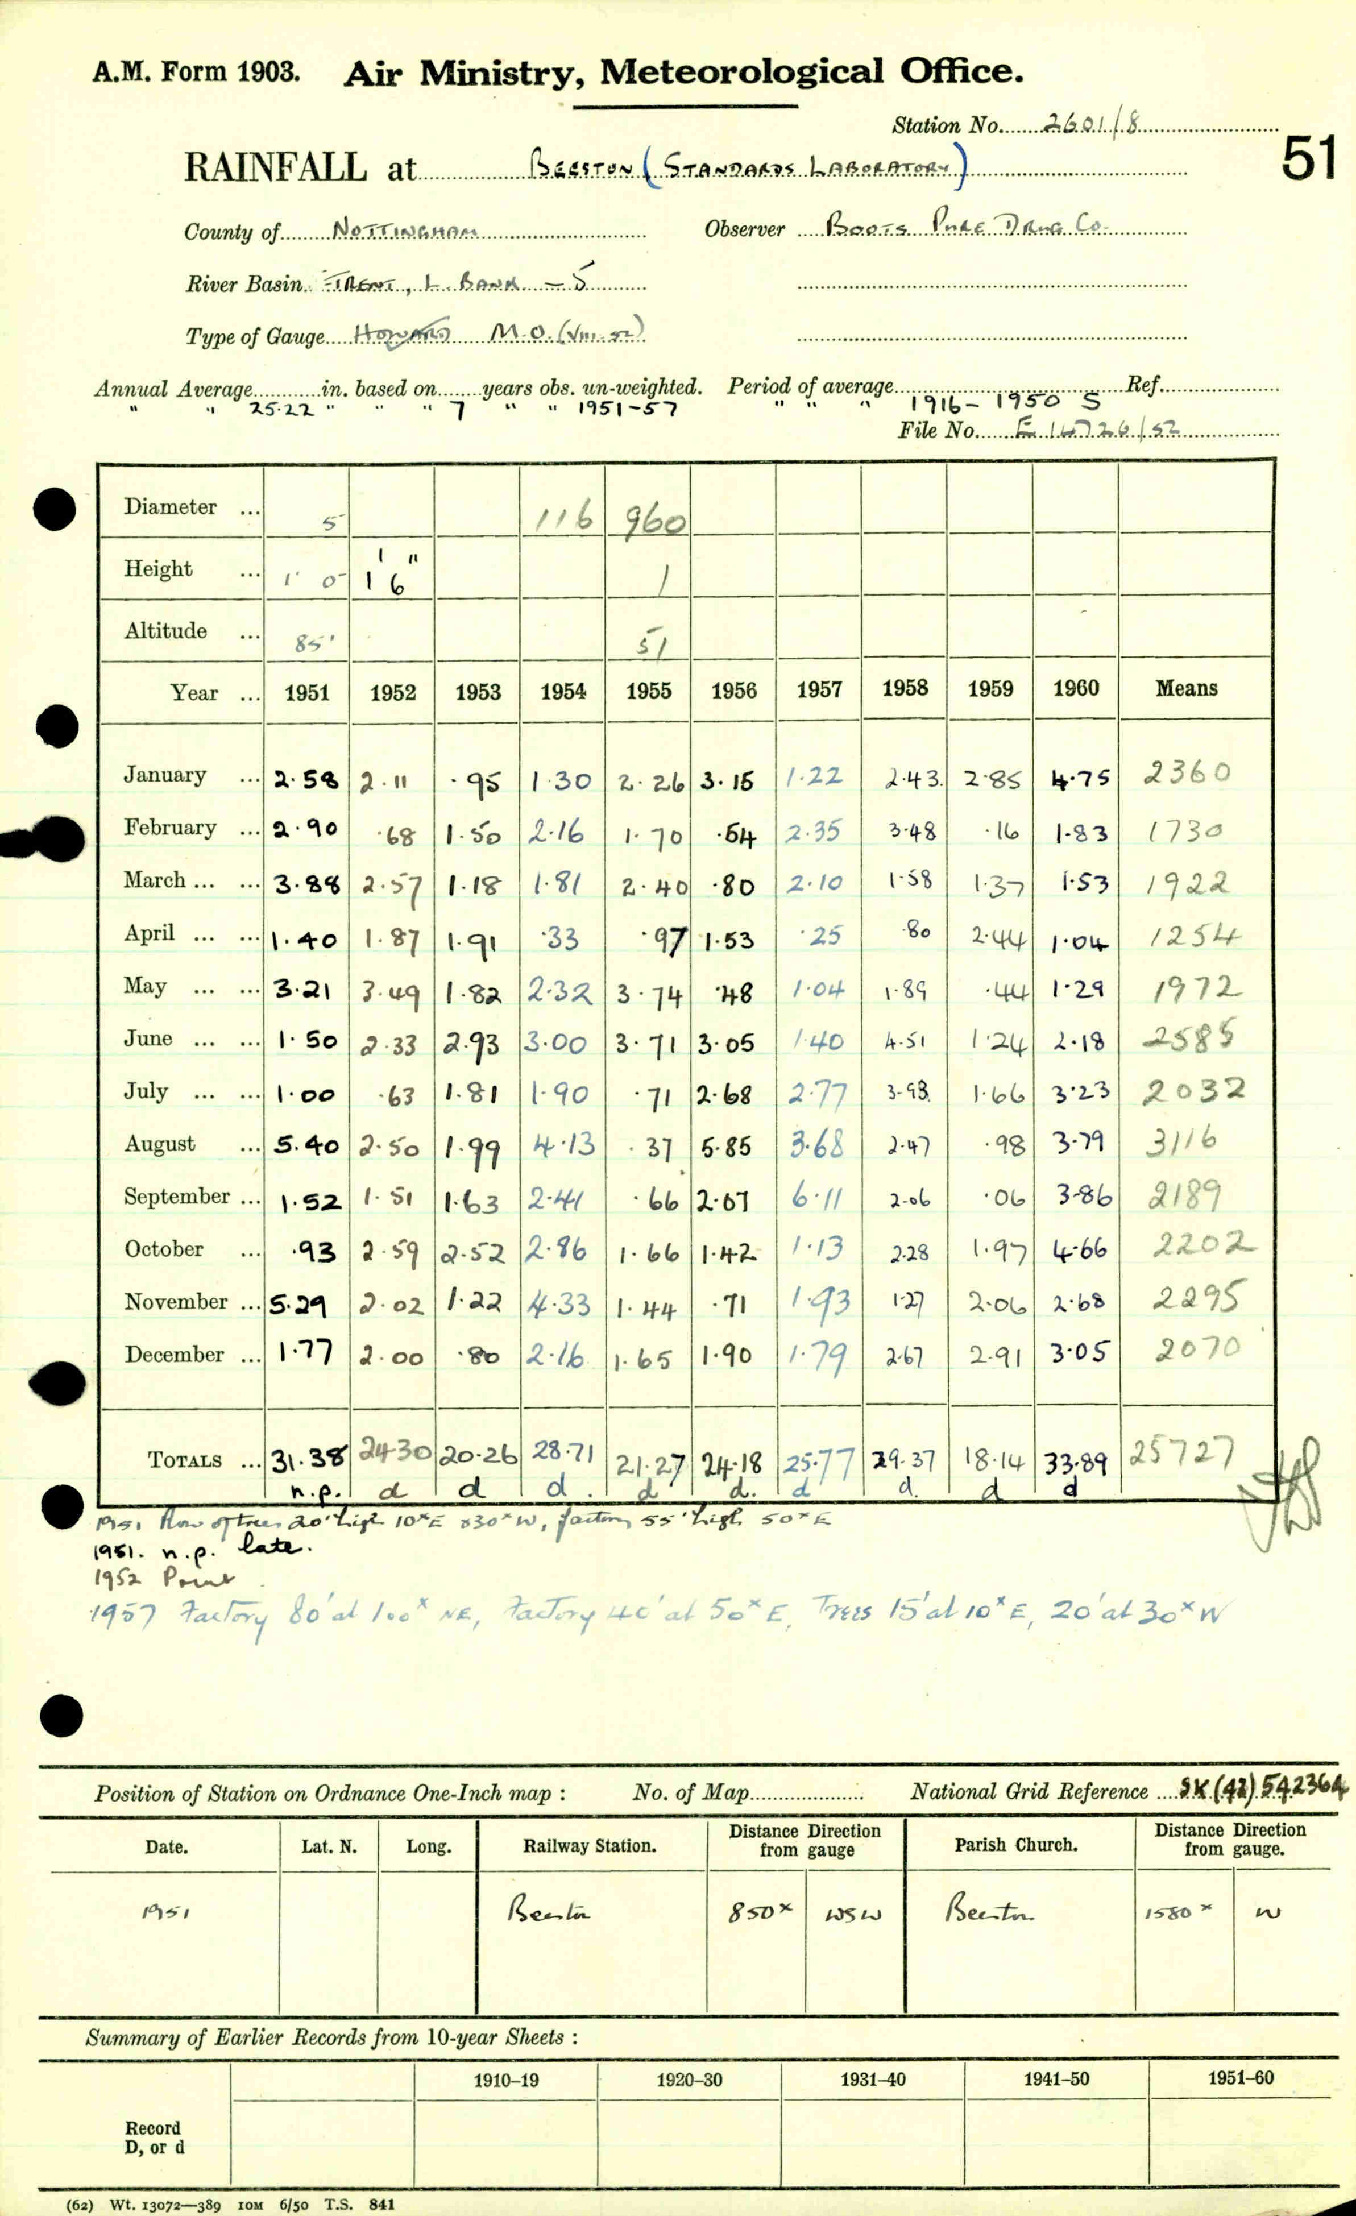 A.M. Form 1903. Air Ministry, Meteorological Office.
Station No. 2601/8
51
RAINFALL at BEESTON (STANDARDS LABORATORY)
County of NOTTINGHAM Observer BOOTS PURE DRUG CO.
River Basin TRENT, L. BANK - 5
Type of Gauge HOWARD M.O. (VIII.52)
Annual Average in. based on years obs. un-weighted. Period of average Ref.
" " 25.22 " " " 7 " " 1951-57 " " " 1916-1950 S
File No. E 14726/52
Diameter ... 5 116 960
Height ... 1' 0" 1' 6" 1
Altitude ... 85' 51
Year ... 1951 1952 1953 1954 1955 1956 1957 1958 1959 1960 Means
January ... 2.58 2.11 .95 1.30 2.26 3.15 1.22 2.43 2.85 4.75 2360
February ... 2.90 .68 1.50 2.16 1.70 .54 2.35 3.48 .16 1.83 1730
March ... ... 3.88 2.57 1.18 1.81 2.40 .80 2.10 1.58 1.37 1.53 1922
April ... ... 1.40 1.87 1.91 .33 .97 1.53 .25 .80 2.44 1.04 1254
May ... ... 3.21 3.49 1.82 2.32 3.74 .48 1.04 1.89 .44 1.29 1972
June ... ... 1.50 2.33 2.93 3.00 3.71 3.05 1.40 4.51 1.24 2.18 2585
July ... ... 1.00 .63 1.81 1.90 .71 2.68 2.77 3.93 1.66 3.23 2032
August ... 5.40 2.50 1.99 4.13 .37 5.85 3.68 2.47 .98 3.79 3116
September ... 1.52 1.51 1.63 2.41 .66 2.07 6.11 2.06 .06 3.86 2189
October ... .93 2.59 2.52 2.86 1.66 1.42 1.13 2.28 1.97 4.66 2202
November ... 5.29 2.02 1.22 4.33 1.44 .71 1.93 1.27 2.06 2.68 2295
December ... 1.77 2.00 .80 2.16 1.65 1.90 1.79 2.67 2.91 3.05 2070
TOTALS ... 31.38 24.30 20.26 28.71 21.27 24.18 25.77 29.37 18.14 33.89 25727
n.p. d d d. d d. d d. d d
1951 Row of trees 20' high 10ˣ E & 30ˣ W, factory 55' high 50ˣ E
1951. n.p. late.
1952 Point
1957 Factory 80' at 100ˣ NE, Factory 40' at 50ˣ E, Trees 15' at 10ˣ E, 20' at 30ˣ W
Position of Station on Ordnance One-Inch map : No. of Map National Grid Reference SK (43) 542364
Date. Lat. N. Long. Railway Station. Distance Direction from gauge Parish Church. Distance Direction from gauge.
1951 Beeston 850ˣ WSW Beeston 1580ˣ W
Summary of Earlier Records from 10-year Sheets :
1910–19 1920–30 1931–40 1941–50 1951–60
Record
D, or d
(62) Wt. 13072—389 10M 6/50 T.S. 841